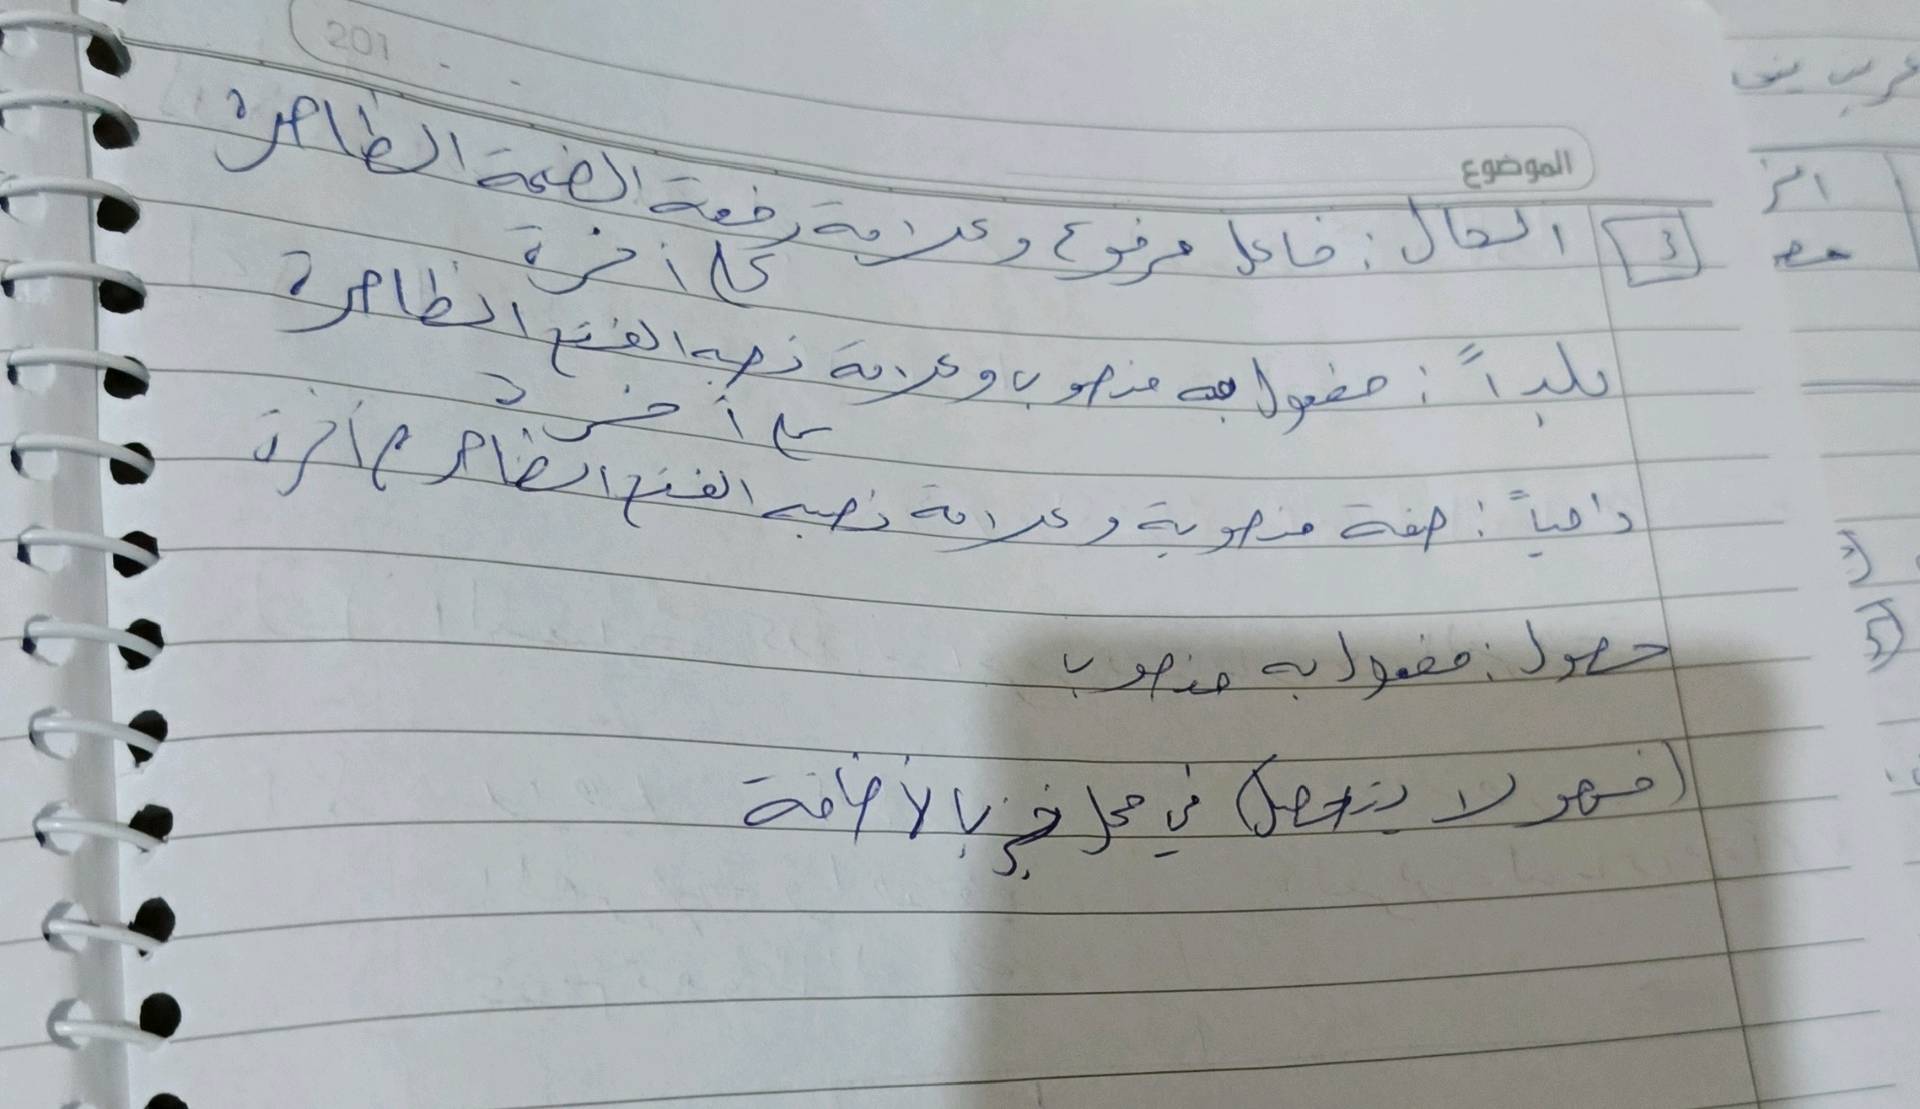 201
الموضوع
3 الحال: فاعل مرفوع وعلامة رفعة الضمة الظاهرة
على أخرة
بلداً: مفعول به منصوب وعلامة نصبه الفتح الظاهرة
على أخرة
دامياً: صفة منصوبة وعلامة نصبه الفتح الظاهر ع أخرة
حصول: مفعول به منصوب
(فهو لا يتحصل) في محل جر بالأضافة